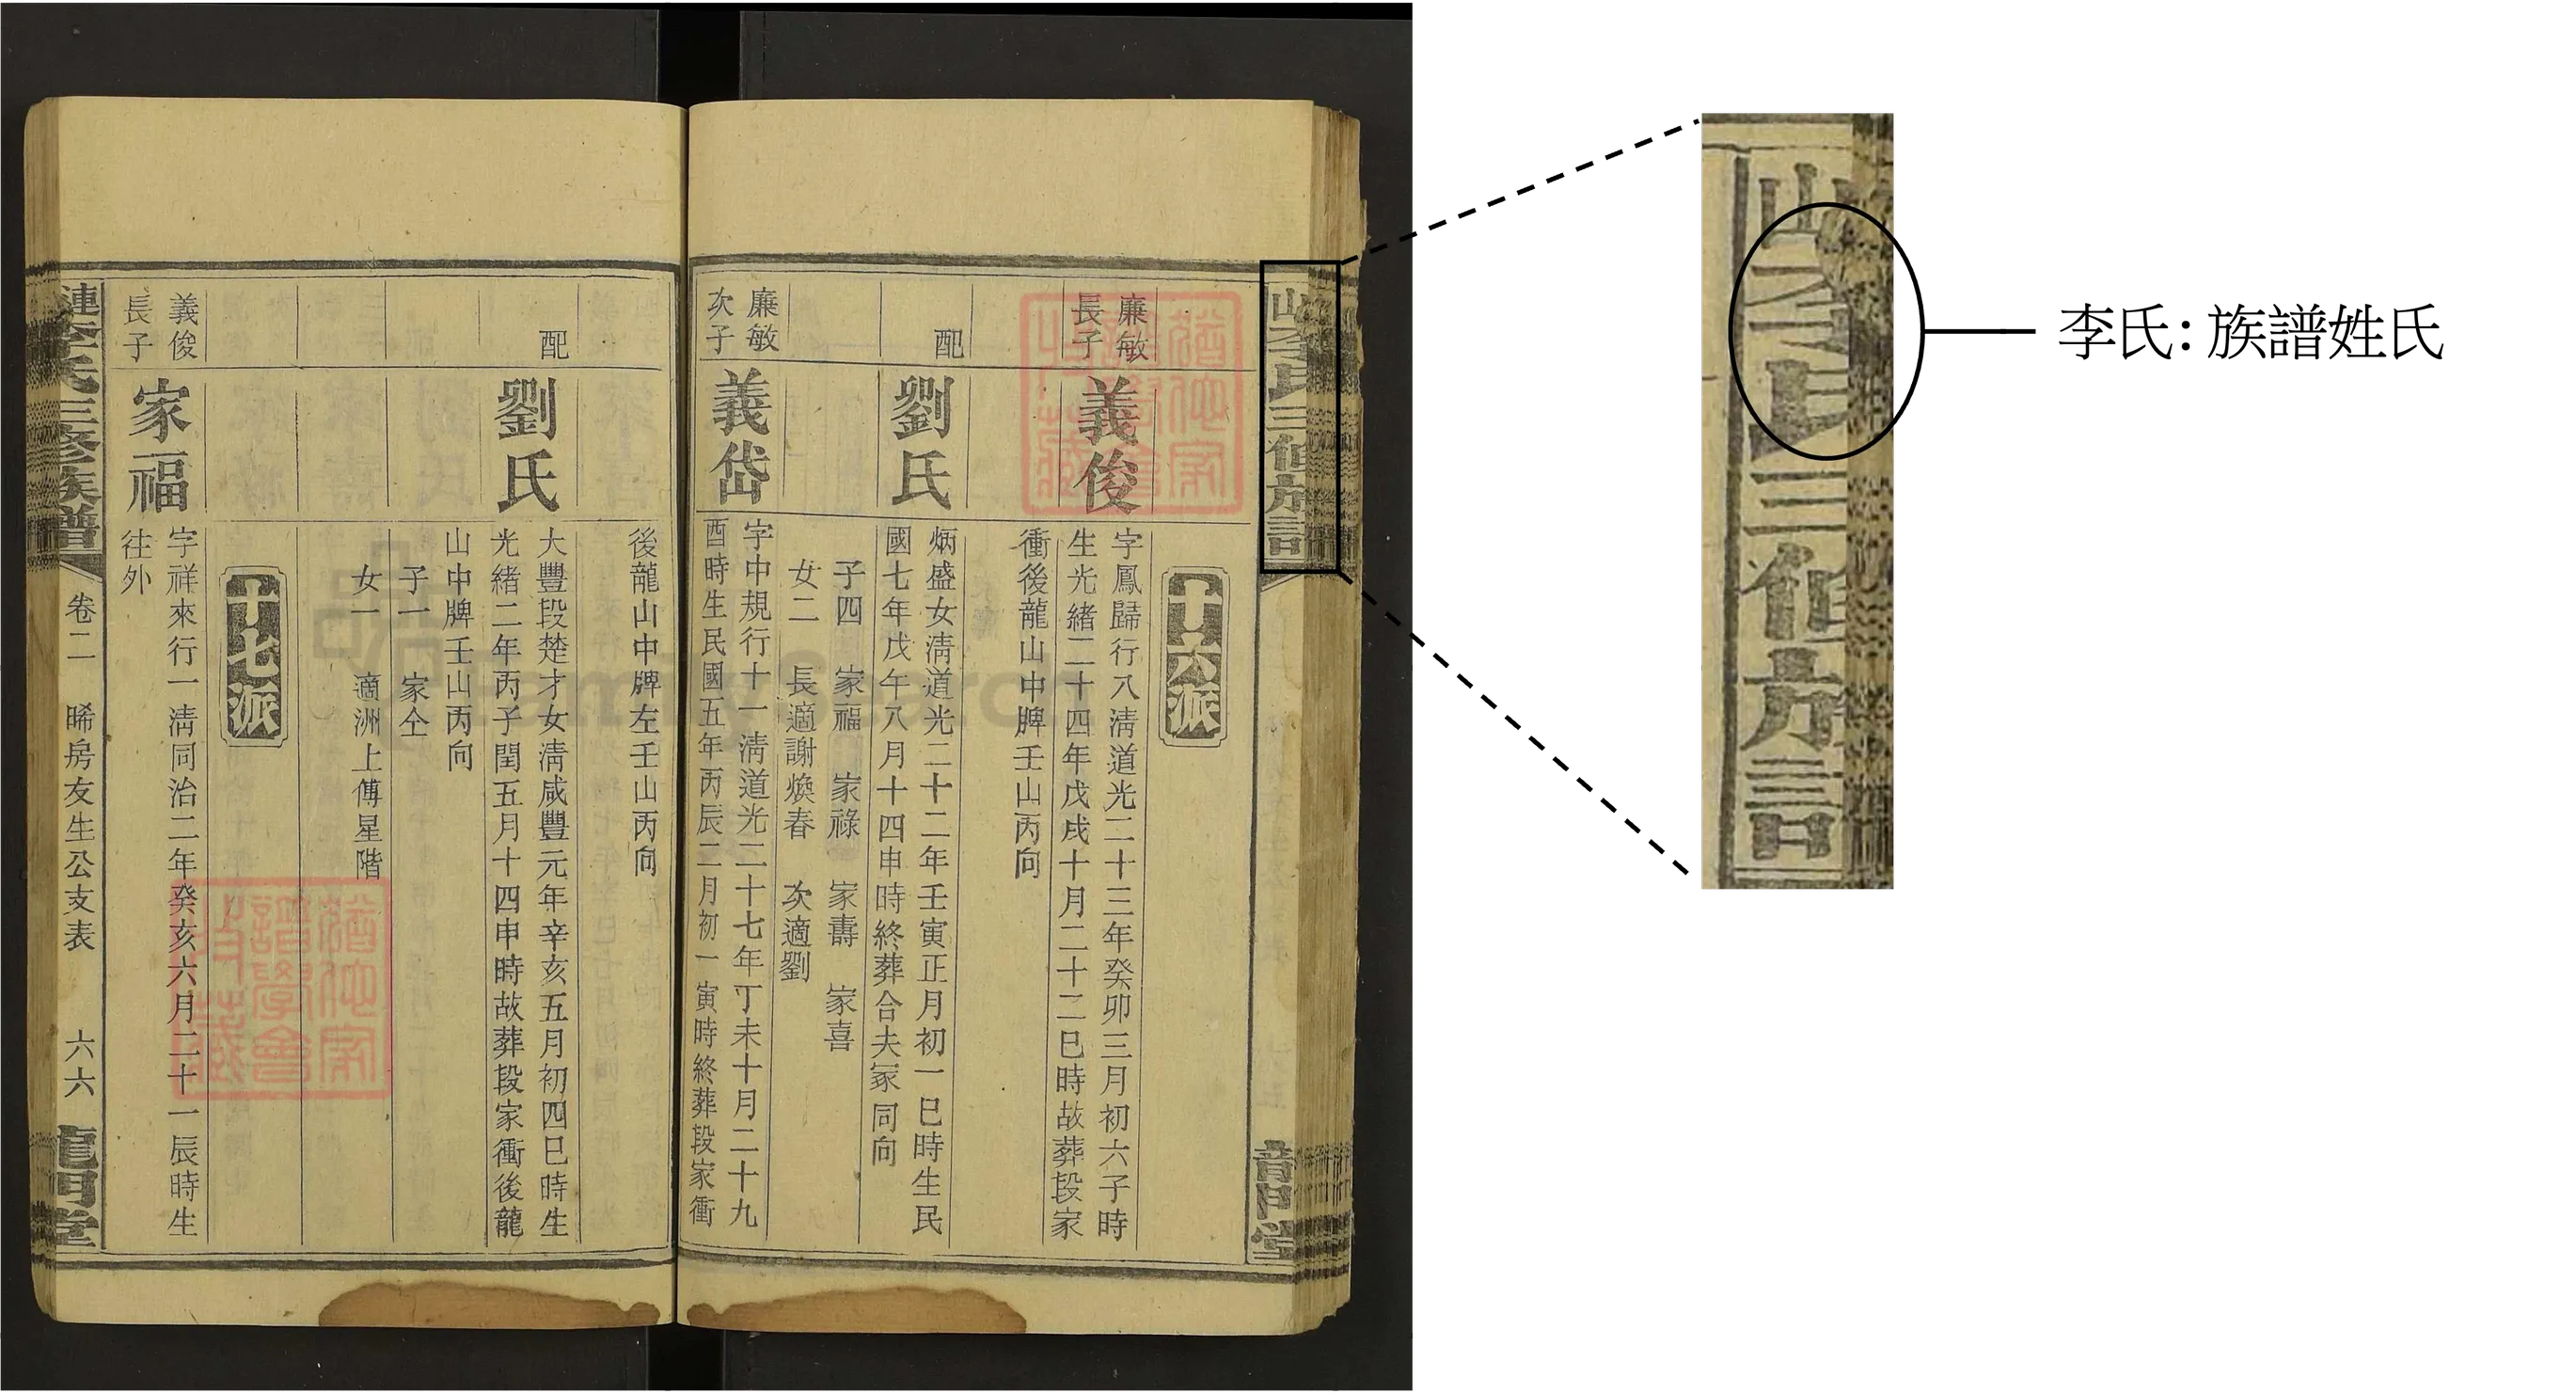 十六派
廉敏
長子
義俊
字鳳歸行八清道光二十三年癸卯三月初六子時
生光緒二十四年戊戌十月二十二巳時故葬段家
衝後龍山中脾壬山丙向
配
劉氏
炳盛女清道光二十二年壬寅正月初一巳時生民
國七年戊午八月十四申時終葬合夫冢同向
子四 家福 家祿 家壽 家喜
女二 長適謝煥春 次適劉
廉敏
次子
義岱
字中規行十一清道光二十七年丁未十月二十九
酉時生民國五年丙辰二月初一寅時終葬段家衝
後龍山中牌左壬山丙向
配
劉氏
大豐段楚才女清咸豐元年辛亥五月初四巳時生
光緒二年丙子閏五月十四申時故葬段家衝後龍
山中牌壬山丙向
子一 家仝
女一 適洲上傅星階
十七派
義俊
長子
家福
字祥來行一清同治二年癸亥六月二十一辰時生
往外
漣李氏三修族譜 卷二 晞房友生公支表 六六 龍門堂
李氏：族譜姓氏